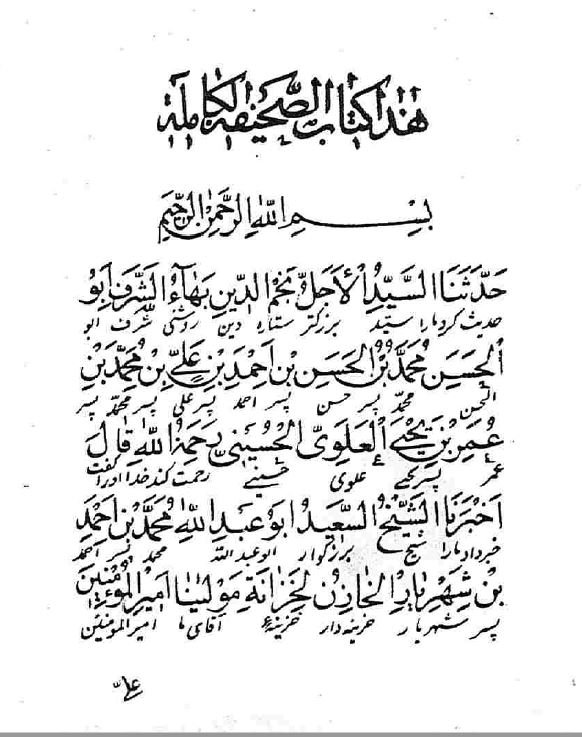 هذا کتاب الصَّحیفة الکاملة
بِسْمِ اللهِ الرَّحْمٰنِ الرَّحیمِ
حَدَّثَنَا السَّیِّدُ الْأَجَلُّ نَجْمُ الدّینِ بَهآءُ الشَّرَفِ اَبُو
حدیث کرد ما را سیّد بزرگتر ستاره دین روشنی شرف ابو
الْحَسَنِ مُحَمَّدُ بْنُ الْحَسَنِ بْنِ اَحْمَدِ بْنِ عَلِیِّ بْنِ مُحَمَّدِ بْنِ
الحسن محمّد پسر حسن پسر احمد پسر علی پسر محمّد پسر
عُمَرِ بْنِ یَحْیَی الْعَلَوِیُّ الْحُسَیْنِیُّ رَحِمَهُ اللهُ قالَ
عمر پسر یحیی علوی حسینی رحمت کند خدا او را گفت
اَخْبَرَنَا الشَّیْخُ السَّعیدُ اَبُو عَبْدِ اللهِ مُحَمَّدُ بْنُ اَحْمَدِ
خبر داد ما را شیخ بزرگوار ابو عبدالله محمد پسر احمد
بْنِ شَهْرِیارِ الْخازِنُ لِخِزانَةِ مَوْلینا اَمیرِ الْمُؤْمِنینَ
پسر شهریار خزینه‌دار خزینهٔ آقای ما امیرالمومنین